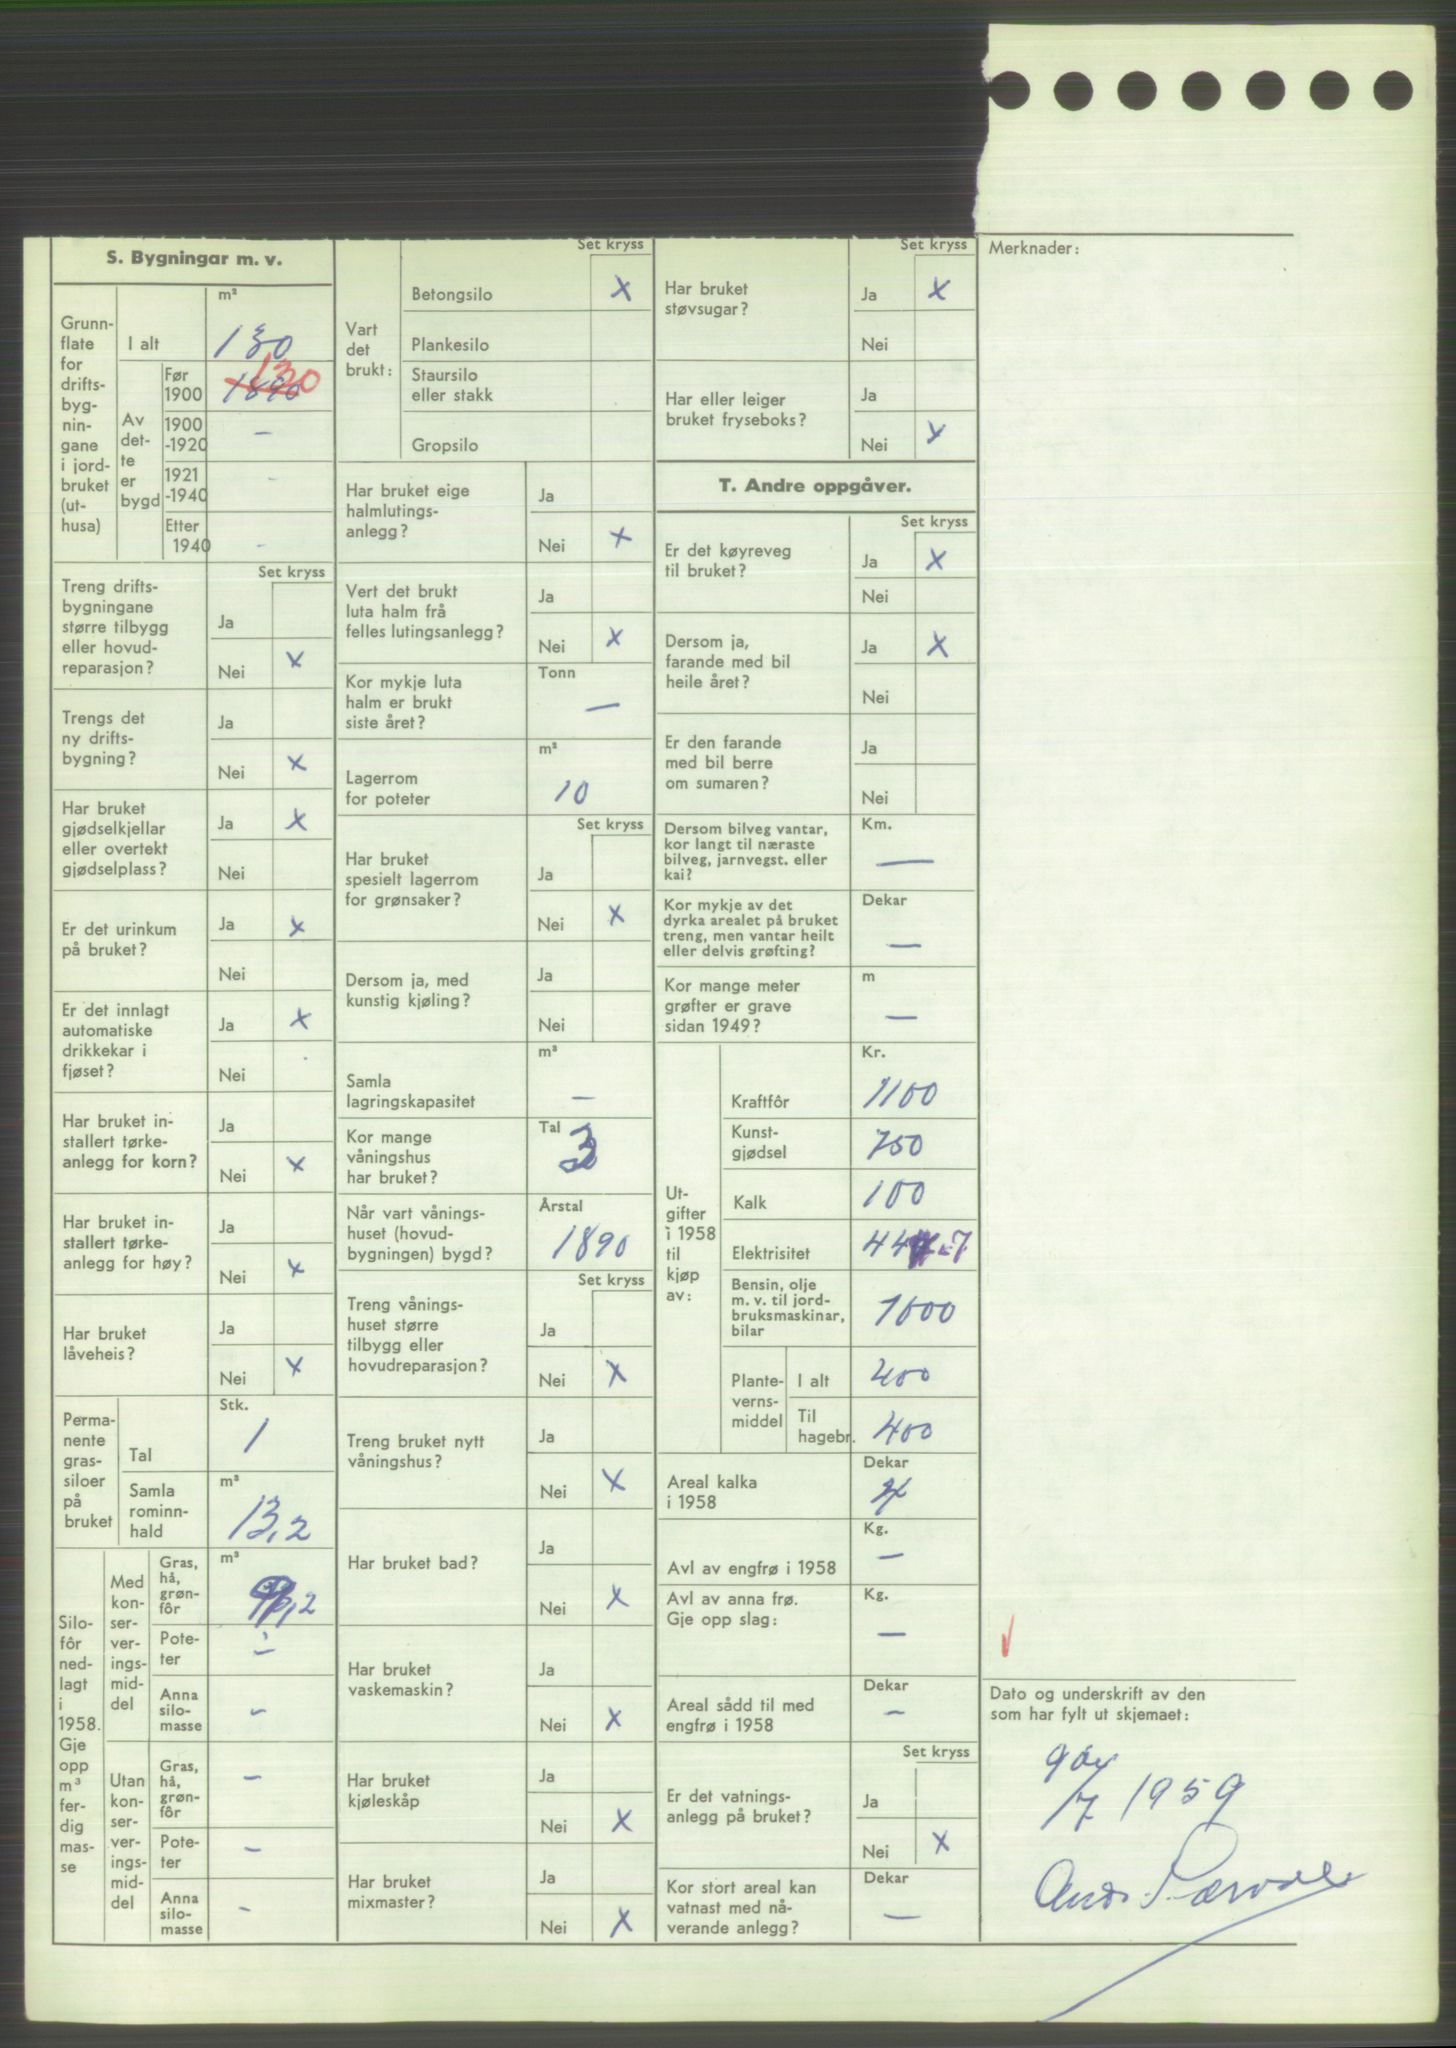 S. Bygningar m. v.
Grunn-
flate
for
drifts-
byg-
nin-
gane
i jord-
bruket
(ut-
husa)
I alt
m²
130
Av
det-
te
er
bygd
Før
1900
1890
130
1900
-1920
–
1921
-1940
-
Etter
1940
-
Set kryss
Treng drifts-
bygningane
større tilbygg
eller hovud-
reparasjon?
Ja
Nei x
Trengs det
ny drifts-
bygning?
Ja
Nei x
Har bruket
gjødselkjellar
eller overtekt
gjødselplass?
Ja x
Nei
Er det urinkum
på bruket?
Ja x
Nei
Er det innlagt
automatiske
drikkekar i
fjøset?
Ja x
Nei
Har bruket in-
stallert tørke-
anlegg for korn?
Ja
Nei x
Har bruket in-
stallert tørke-
anlegg for høy?
Ja
Nei x
Har bruket
låveheis?
Ja
Nei x
Perma-
nente
gras-
siloer
på
bruket
Tal
Stk.
1
Samla
rominn-
hald
m³
13,2
Silo-
fôr
ned-
lagt
i
1958.
Gje
opp
m³
fer-
dig
mas-
se
Med
kon-
ser-
ver-
ings-
mid-
del
Gras,
hå,
grøn-
fôr
m³
Pote-
ter
–
Anna
silo-
masse
–
Utan
kon-
ser-
ver-
ings-
mid-
del
Gras,
hå,
grøn-
fôr
–
Pote-
ter
–
Anna
silo-
masse
-
Set kryss
Vart
det
brukt:
Betongsilo x
Plankesilo
Staursilo
eller stakk
Gropsilo
Har bruket eige
halmlutings-
anlegg?
Ja
Nei x
Vert det brukt
luta halm frå
felles lutingsanlegg?
Ja
Nei x
Kor mykje luta
halm er brukt
siste året?
Tonn
–
Lagerrom
for poteter
m²
10
Set kryss
Har bruket
spesielt lagerrom
for grønsaker?
Ja
Nei x
Dersom ja, med
kunstig kjøling?
Ja
Nei
Samla
lagringskapasitet
m³
–
Kor mange
våningshus
har bruket?
Tal
Når vart vånings-
huset (hovud-
bygningen) bygd?
Årstal
1890
Set kryss
Treng vånings-
huset større
tilbygg eller
hovudreparasjon?
Ja
Nei x
Treng bruket nytt
våningshus?
Ja
Nei x
Har bruket bad?
Ja
Nei x
Har bruket
vaskemaskin?
Ja
Nei x
Har bruket
kjøleskåp
Ja
Nei x
Har bruket
mixmaster?
Ja
Nei x
Set kryss
Har bruket
støvsugar?
Ja x
Nei
Har eller leiger
bruket fryseboks?
Ja
Nei x
T. Andre oppgåver.
Set kryss
Er det køyreveg
til bruket?
Ja x
Nei
Dersom ja,
farande med bil
heile året?
Ja x
Nei
Er den farande
med bil berre
om sumaren?
Ja
Nei
Dersom bilveg vantar,
kor langt til næraste
bilveg, jarnvegst. eller
kai?
Km.
—
Kor mykje av det
dyrka arealet på bruket
treng, men vantar heilt
eller delvis grøfting?
Dekar
—
Kor mange meter
grøfter er grave
sidan 1949?
m
—
Ut-
gifter
i 1958
til
kjøp
av:
Kr.
Kraftfôr
1100
Kunst-
gjødsel
750
Kalk
100
Elektrisitet
Bensin, olje
m. v. til jord-
bruksmaskinar,
bilar
1000
Plante-
verns-
middel
I alt
400
Til
hagebr.
400
Areal kalka
i 1958
Dekar
Avl av engfrø i 1958
Kg.
–
Avl av anna frø.
Gje opp slag:
Kg.
—
Areal sådd til med
engfrø i 1958
Dekar
–
Set kryss
Er det vatnings-
anlegg på bruket?
Ja
Nei x
Kor stort areal kan
vatnast med nå-
verande anlegg?
Dekar
—
Merknader:
Dato og underskrift av den
som har fylt ut skjemaet:
/7 1959